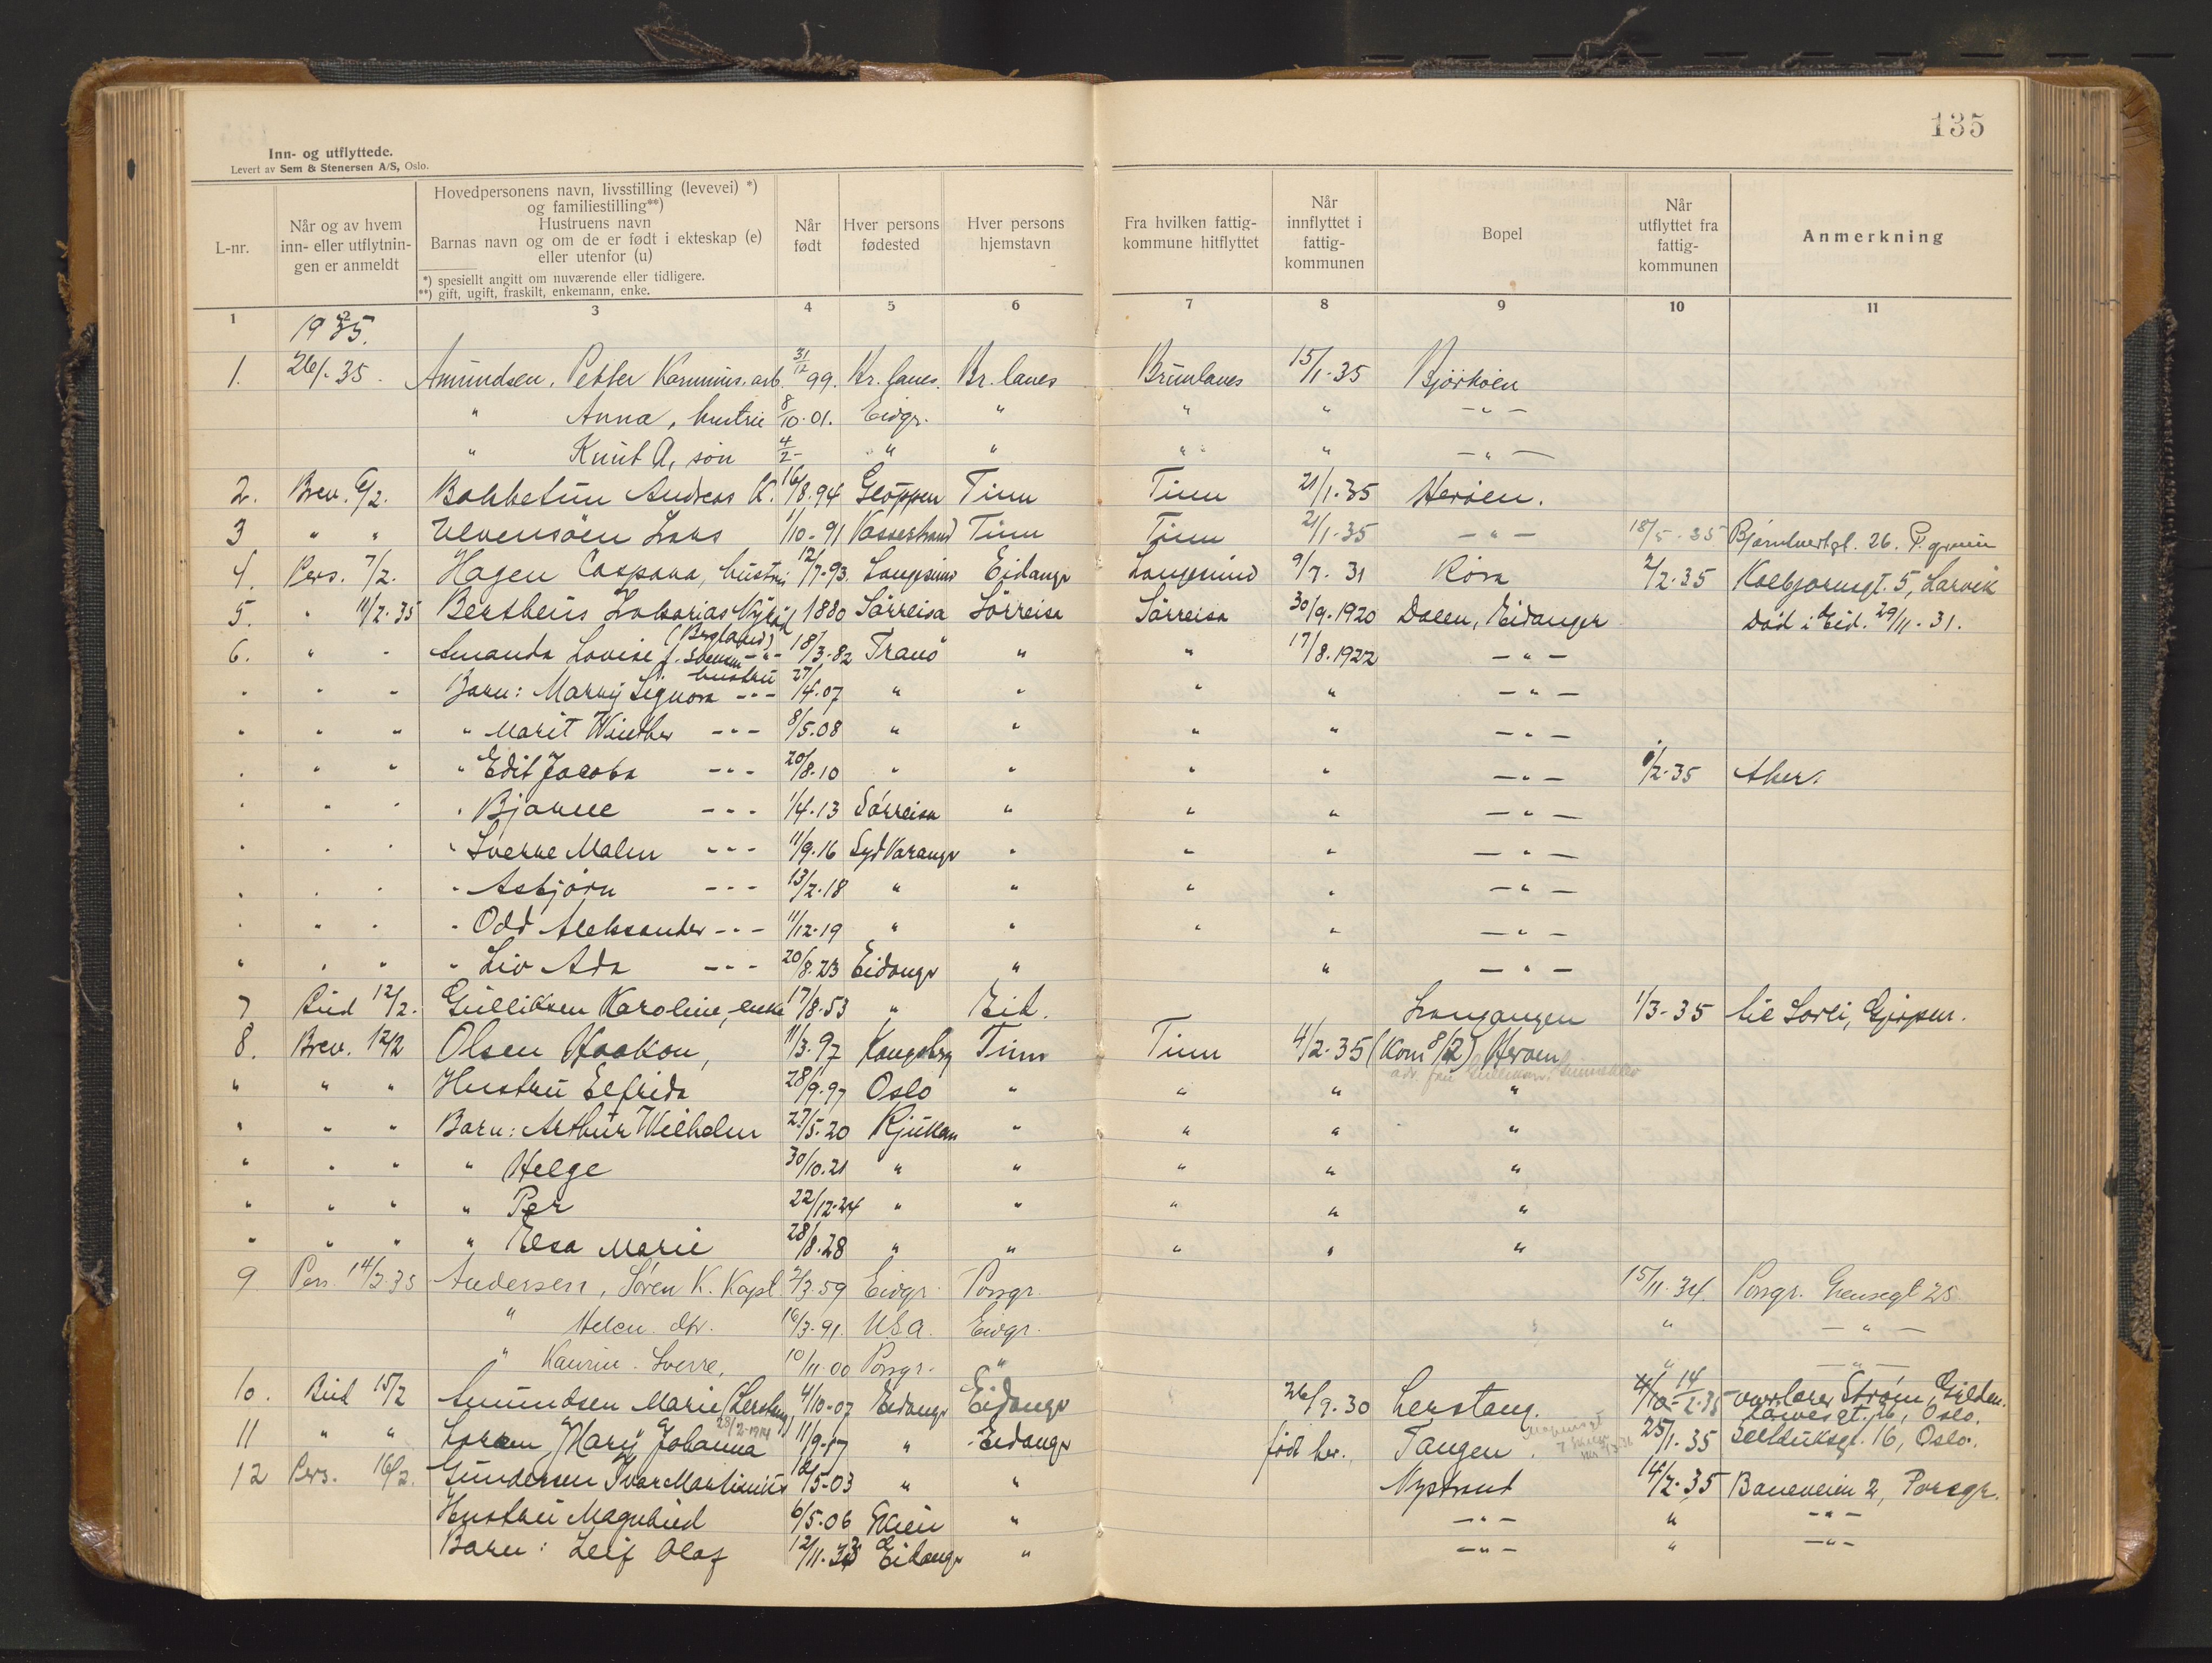 135
Inn- og utflyttede.
Levert av Sem & Stenersen A/S, Oslo.
L-nr.
Når og av hvem inn- eller utflytnin- gen er anmeldt
Hovedpersonens navn, livsstilling (levevei) *)
og familiestilling**)
Hustruens navn
Barnas navn og om de er født i ekteskap (e)
eller utenfor (u)
*) spesiellt angitt om nuværende eller tidligere.
**) gift, ugift, fraskilt, enkemann, enke.
Når født
Hver persons fødested
Hver persons hjemstavn
Fra hvilken fattig- kommune hitflyttet
Når innflyttet i fattig- kommunen
Bopel
Når utflyttet fra fattig- kommunen
Anmerkning
1 2 3 4 5 6 7 8 9 10 11
1935.
1. 26/1-35. Amundsen, Petter Kommus. arb. 31/12 99. Br. lanes. Br. lanes Brunlanes 15/1-35 Bjørkøen
" Anna, hustru 8/10-01. Eidgr. " " " -"-
" Knut A, søn 4/2- " " " " -"-
2. Brev. 6/2. Bakketun Andreas K. 16/8.94 Gloppen Tinn Tinn 21/1-35 Herøen.
3 " " Ulvensøen Lars 1/10-91 Vossestrand Tinn Tinn 21/1-35 -"- 18/5-35 26. P.grunn
4. Pers. 7/2. Hagen Caspara, hustru 12/7-93. Langesund Eidanger Langesund 9/7-31 Røra 2/2-35 Kolbjørnsgt. 5, Larvik
5. " 11/2-35 Bertheus Zakarias 1880 Sørreisa Sørreisa Sørreisa 30/9-1920 Dalen, Eidanger Død i Eid. 29/11-31.
(Bergland)
6. " - Amanda Lovise f. Svensen -"- 18/3-82 Tranø " " 17/8.1922 -"-
hustru
" " " Barn: Marny Signora -"- 27/4.07 " " " " -"-
" " " " Marit Winther -"- 8/5.08 " " " " -"-
" " " " Edit Jacoba -"- 20/8-10 " " " " -"- 1/2-35 Aker.
" " " " Bjarne -"- 1/4-13 Sørreisa " " " -"-
" " " " Sverre Malm -"- 11/9-16 Syd Varanger " " " -"-
" " " " Asbjørn -"- 13/2-18 " " " " -"-
" " " " Odd Aleksander -"- 11/12-19 " " " " -"-
" " " " Liv Ada -"- 20/8.23 Eidanger " " -"-
7 Bud 12/2. Gulliksen Karoline, enke 17/8-53 " Eid. Langangen 1/3-35 til Sørli, Gjerpen.
8. Brev. 12/2 Olsen Haakon, 11/3-97 Kongsberg Tinn Tinn 4/2-35 (kom 8/2) Herøen
" " " Hustru Elfrida 28/9-97 Oslo " " " "
" " " Barn: Arthur Wilhelm 27/5-20 Rjukan " " " "
" " " " Helge 30/10.21 " " " " "
" " " " Per 22/12-24 " " " " "
" " " " Elsa Marie 28/8.28 " " " " "
9 Pers. 14/2-35 Andersen, Søren K. Kapt. 2/3-59 Eidgr. Porsgr. 15/11-34. Porsgr. 25
" Helen dtr. 16/3-91. U.S.A. Eidgr. " -"-
" Kaurin. Sverre, 10/11-00 Porsgr. " " -"-
10. Bud 15/2 Amundsen Marie (Lerstang) 4/10-07 Eidanger Eidanger 26/9-30 Lerstang. 14/2-35 overlærer Strøm, Gylden-
løvesgt. 16, Oslo.
11 " " Larsen, Mary Johanna 11/9-17 " Eidanger født her. Tangen. 25/1-35 Seilduksgt. 16, Oslo.
28/2-1914
12 Pers. 16/2. Gundersen Ivar Martinius 18/5-03 " " Nystrand 14/2-35 Baneveien 2, Porsgr.
Hustru Magnhild 6/5-06 Skien " -"- " -"-
Barn: Leif Olaf 12/11-33 Eidanger " -"- " -"-